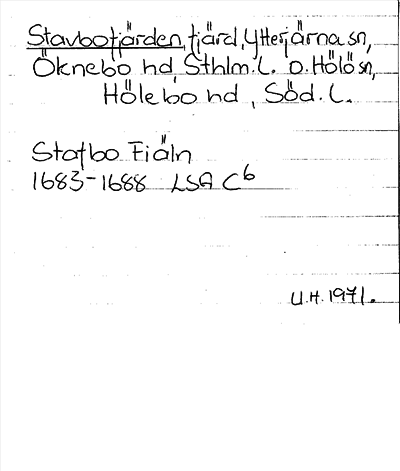 Stavbofjärden, fjärd, Ytterjärna sn,
Öknebo hd, Sthlm:L. o. Hölö sn,
Hölebo hd, Söd. L.
Stafbo Fiäln
1683-1688 LSA C6
U.H. 1971.